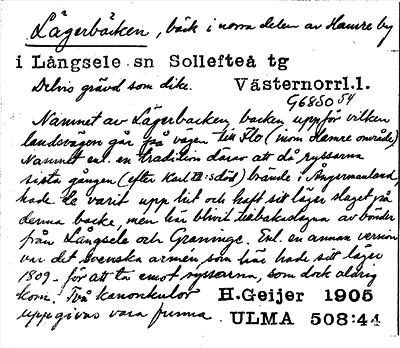 Lägerbäcken, bäck i norra delen av Hamre by
i Långsele sn Sollefteå tg
Delvis grävd som dike. Västernorrl.l.
G6850 54
Namnet av Lägerbacken, backen uppför vilken
landsvägen går på vägen till Flo (inom Hamre område).
Namnet enl. en tradition därav att då ryssarna
sista gången (efter Karl XII:s död) brände i Ångermanland,
hade de varit upp hit och haft sitt läger slaget på
denna backe, men här blivit tillbakaslagna av bönder
från Långsele och Graninge. Enl. en annan version
var det svenska armén som här hade sitt läger
1809 för att ta emot ryssarna, som dock aldrig
kom. Två kanonkulor H.Geijer 1905
uppgivas vara funna. ULMA 508:44